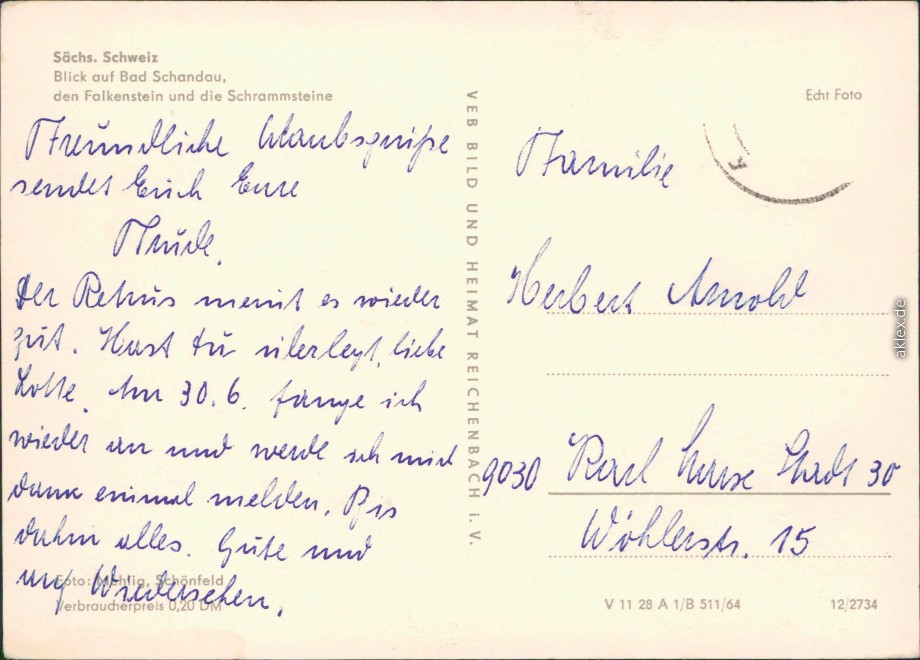 Sächs. Schweiz
Blick auf Bad Schandau,
den Falkenstein und die Schrammsteine
Freundliche Urlaubsgrüße
sendet Euch Eure
Trude.
Der meint es wieder
gut. Hast Du überlegt, liebe
Lotte. Am 30.6. fange ich
wieder an und werde ich mich
dann einmal melden. Bis
dahin alles Gute und
auf Wiedersehen.
Foto: Mehlig, Schönfeld
Verbraucherpreis 0,20 DM
VEB BILD UND HEIMAT REICHENBACH i. V.
Echt Foto
Familie
Herbert Arnold
9030 Karl Marx Stadt 30
Wöhlerstr. 15
V 11 28 A 1/B 511/64 12/2734
aklex.de